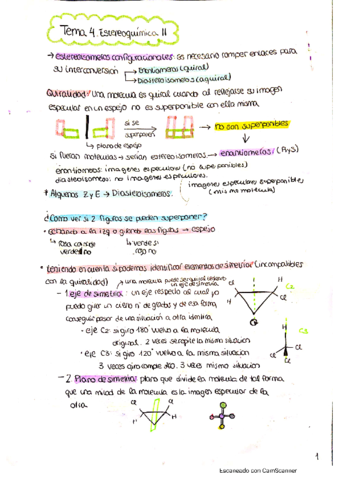 Tema 4. Estereoquímica II
→ estereoisómeros configuracionales: es necesario romper enlaces para
su interconversión → Enantiómeros (quiral)
→ Diastereoisómeros (aquiral)
Quiralidad: Una molécula es quiral cuando al reflejarse su imagen
especular en un espejo no es superponible con ella misma
si se
superponen
→ no son superponibles
→ plano de espejo
Si fueran moléculas → serían estereoisómeros → enantiómeros (R y S)
enantiómeros: imágenes especulares (no superponibles)
diastereoisómeros: no imágenes especulares.
imágenes especulares superponibles
(misma molécula)
* Alquenos Z y E → Diastereoisómeros
¿Cómo ver si 2 figuras se pueden superponer?
girando las figuras → espejo
rosa
verde no
verde si
rojo no
• teniendo en cuenta si podemos identificar elementos de simetría (incompatibles
con la quiralidad)
una molécula puede ser quiral
un eje de simetría
- 1 eje de simetría: un eje respecto al cual yo
puedo girar un cierto nº de grados y de esa forma
conseguir pasar de una situación a otra idéntica
• eje C2: si giro 180° vuelvo a la molécula
original. 2 veces se repite la misma situación
• eje C3: si giro 120° vuelvo a la misma situación
3 veces giro completo. 3 veces misma situación
- 2 Plano de simetría: plano que divide la molécula de tal forma
que una mitad de la molécula es la imagen especular de la
otra.
H
H
Cl
Cl
H
Cl
Cl
H
H
1
Escaneado con CamScanner